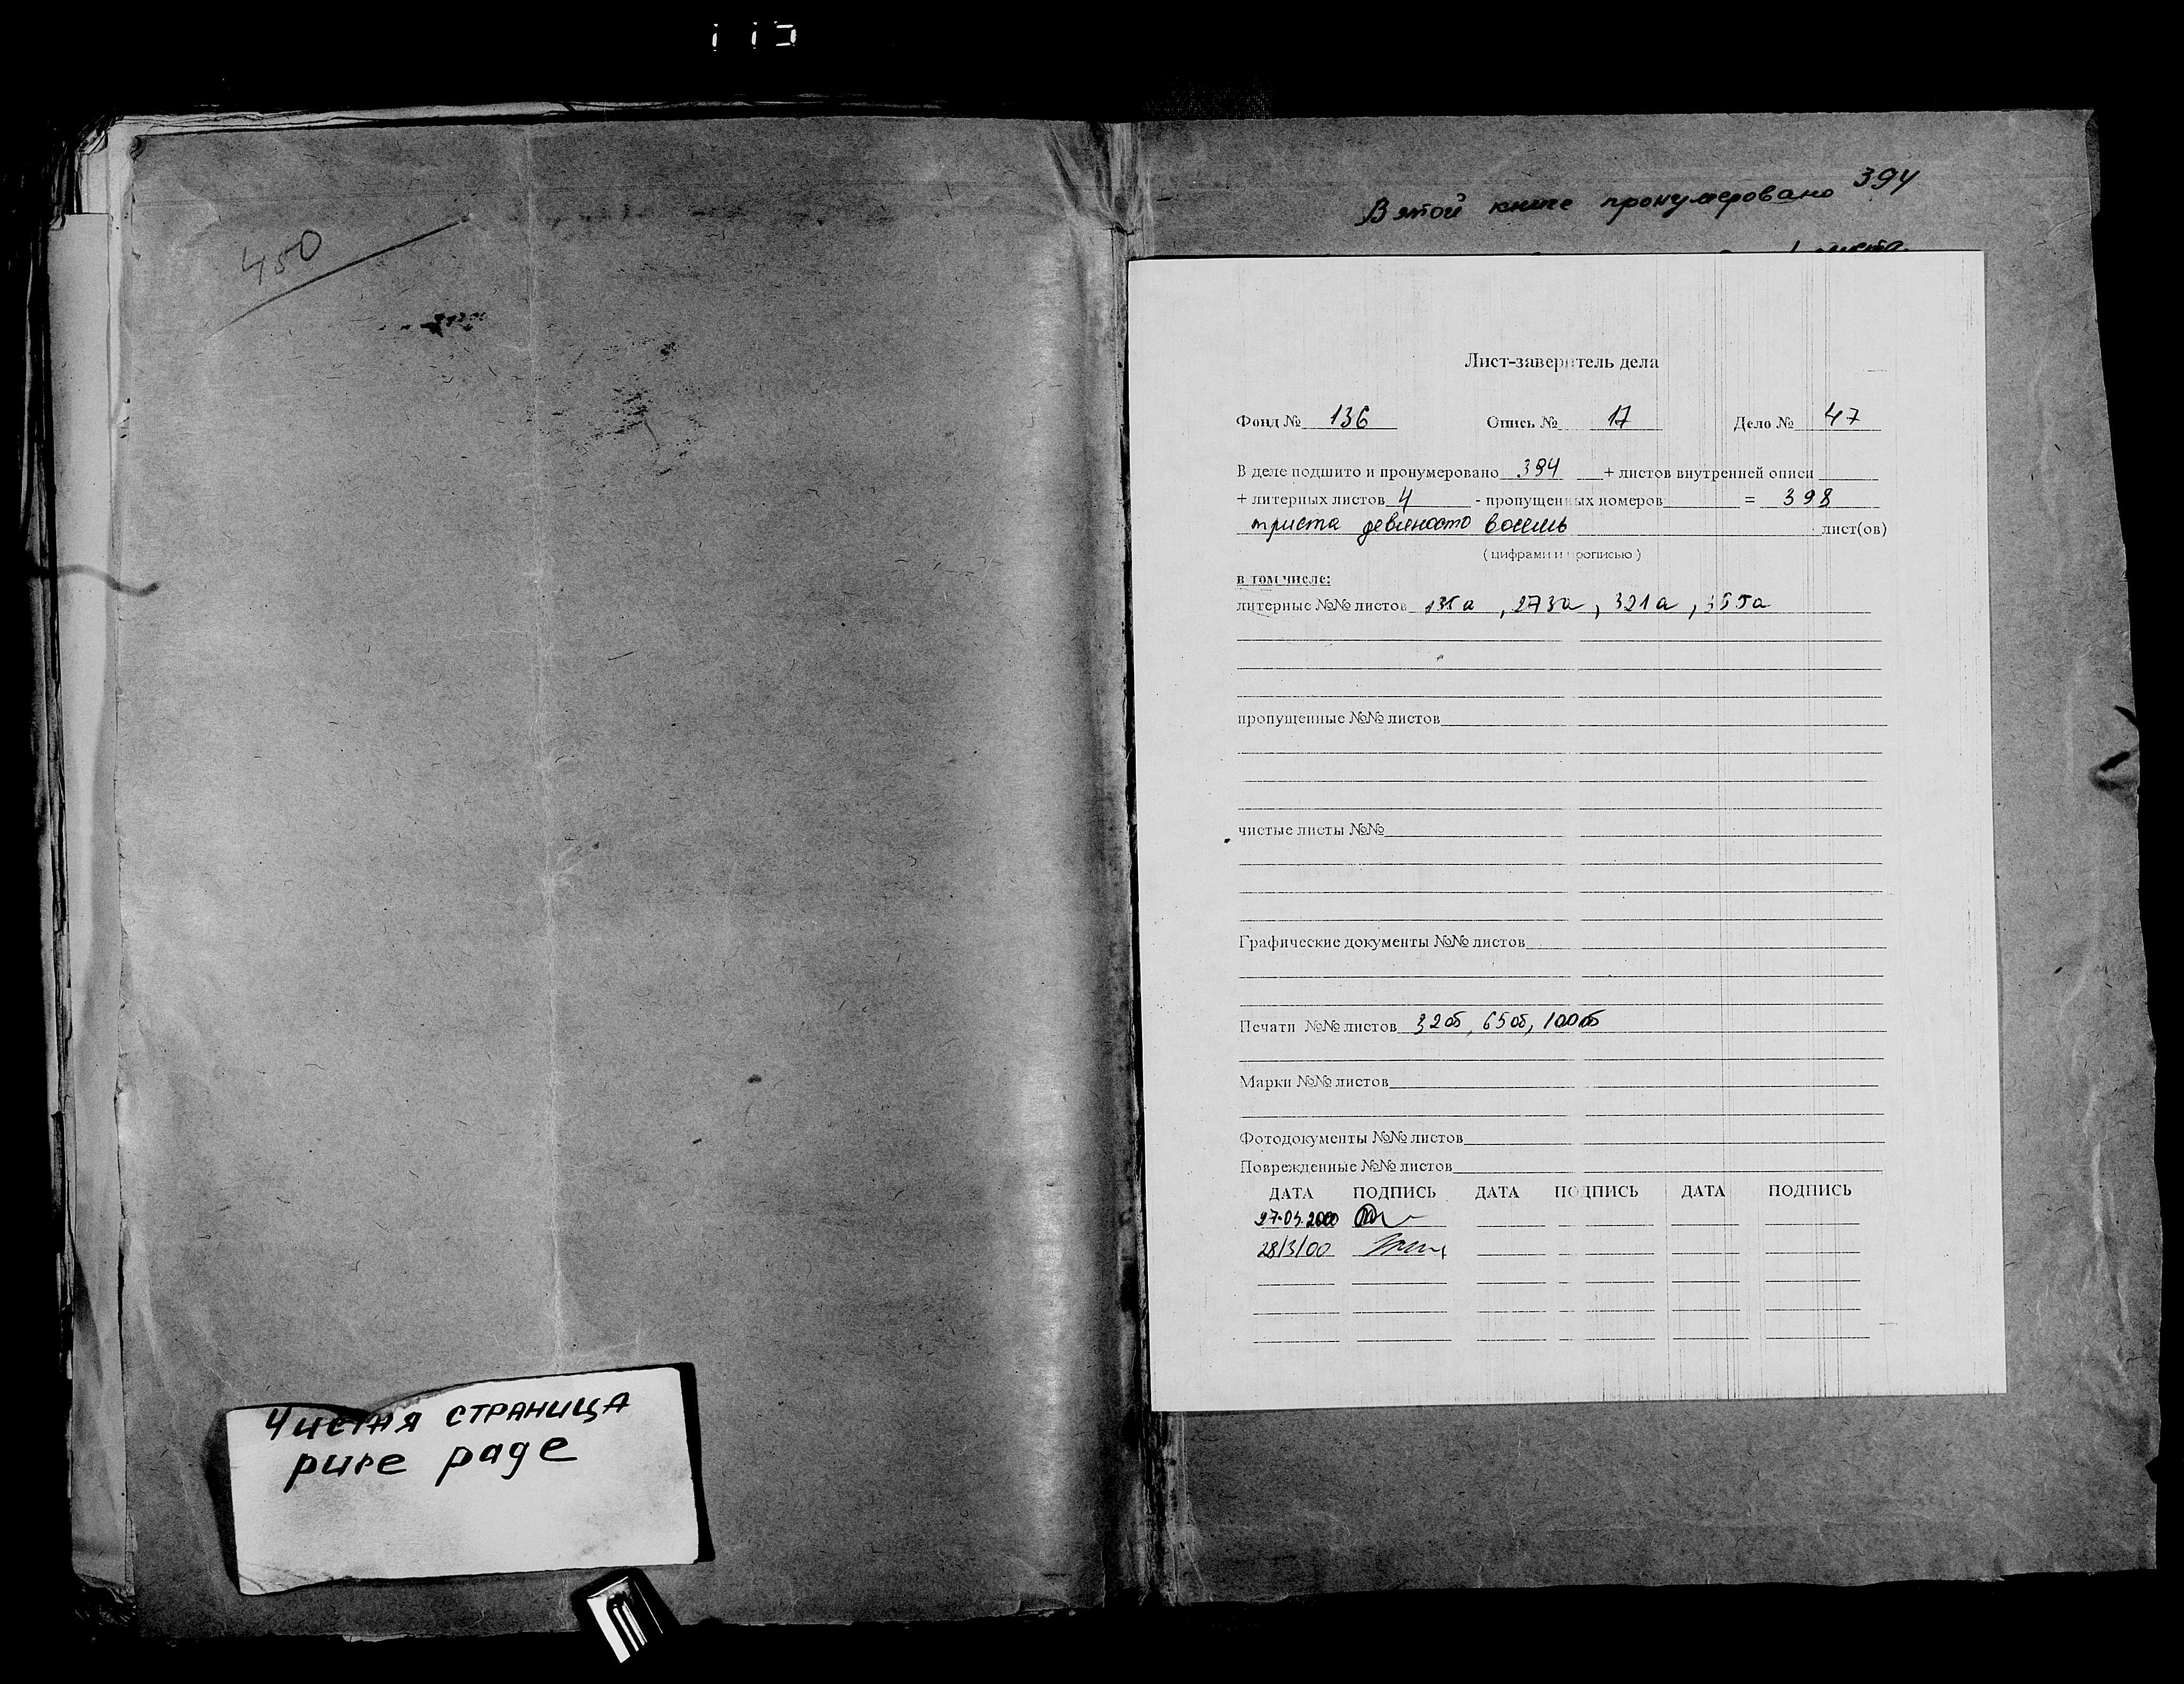 450
Чистая СТРАНИЦА
pure page
В этой книге пронумеровано 394
листа.
Лист-заверитель дела
Фонд № 136 Опись № 17 Дело № 47
В деле подшито и пронумеровано 394 + листов внутренней описи
+ литерных листов 4 - пропущенных номеров = 398
триста девяносто восемь лист(ов)
( цифрами и прописью )
в том числе:
литерные №№ листов 135а , 273а , 321а , 355а
пропущенные №№ листов
чистые листы №№
Графические документы №№ листов
Печати №№ листов 32об, 65об, 100об
Марки №№ листов
Фотодокументы №№ листов
Поврежденные №№ листов
ДАТА ПОДПИСЬ ДАТА ПОДПИСЬ ДАТА ПОДПИСЬ
27.03.2000
28/3/00